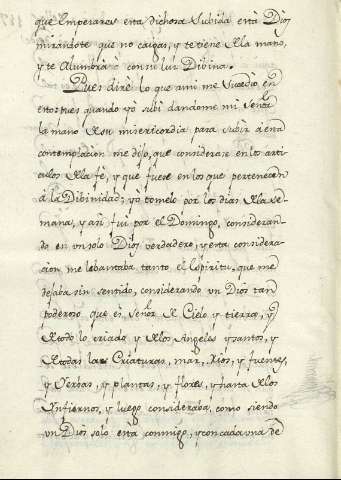 que Emperares esta dichosa Subida està Dios
mirandote que no caigas, y te tiene Ɛla mano,
y te Alumbra con su luz Dibina.
Pues dirè lo que ami me Sucediò en
estos tres quando yò subì dandome mi Señor
la mano Ɛsu misericordia para subir à esta
contemplacion me dijo, que considerase en los arti-
culos Ɛla fe, y que fuese en los que pertenecen
à la Dibinidad; yò tomelo por los dias Ɛla se-
mana, y asi fui por el Domingo, consideran-
do en un solo Dios verdadero, y esta considera-
cion me lebantaba tanto el Espiritu, que me
dejaba sin sentido, considerando un Dios tan
poderoso que es Señor Ɛ Cielo y tierra, y
Ɛtodo lo criado, y Ɛlos Angeles y santos, y
Ɛtodas las Criaturas, mar, Rios, y fuentes,
y Yerbas, y plantas, y flores, y hasta Ɛlos
Infiernos, y luego consideraba, como siendo
un Dios solo està conmigo, y con cada una de